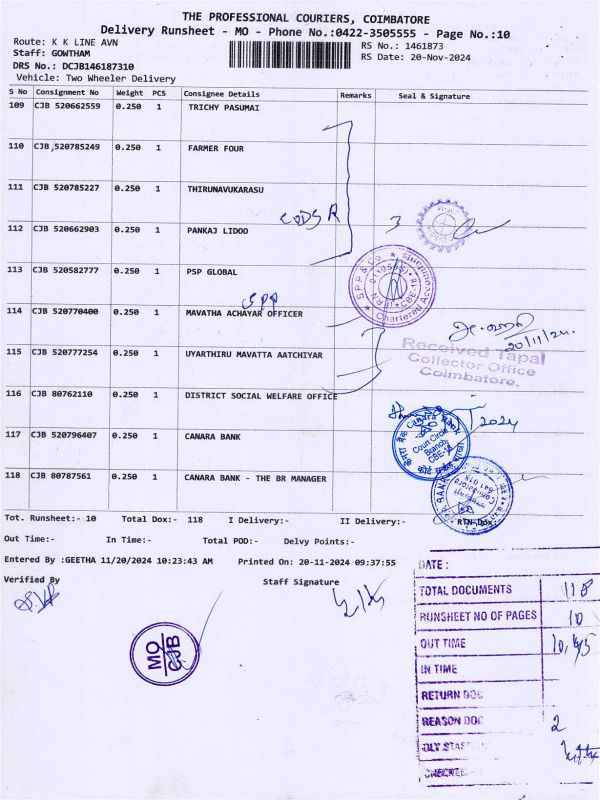 THE PROFESSIONAL COURIERS, COIMBATORE
Delivery Runsheet - MO - Phone No.:0422-3505555 - Page No.:10
Route: K K LINE AVN
RS No.: 1461873
Staff: GOWTHAM
RS Date: 20-Nov-2024
DRS No.: DCJB146187310
Vehicle: Two Wheeler Delivery
S No Consignment No Weight PCS Consignee Details Remarks Seal & Signature
109 CJB 520662559 0.250 1 TRICHY PASUMAI
110 CJB,520785249 0.250 1 FARMER FOUR
111 CJB 520785227 0.250 1 THIRUNAVUKARASU
112 CJB 520662903 0.250 1 PANKAJ LIDOO
3
113 CJB 520582777 0.250 1 PSP GLOBAL
S P P & Co
Chartered Acc
114 CJB 520770400 0.250 1 MAVATHA ACHAYAR OFFICER
20/11/24.
Received Tapal
Collector Office
Coimbatore.
115 CJB 520777254 0.250 1 UYARTHIRU MAVATTA AATCHIYAR
116 CJB 80762110 0.250 1 DISTRICT SOCIAL WELFARE OFFICE
2024
117 CJB 520796407 0.250 1 CANARA BANK
CANARA BANK
Court Circle
Branch
CBE-18
118 CJB 80787561 0.250 1 CANARA BANK - THE BR MANAGER
Tot. Runsheet:- 10 Total Dox:- 118 I Delivery:- II Delivery:- RTN Dox:
Out Time:- In Time:- Total POD:- Delvy Points:-
Entered By :GEETHA 11/20/2024 10:23:43 AM Printed On: 20-11-2024 09:37:55
Verified By Staff Signature
MO
CJB
DATE :
TOTAL DOCUMENTS 118
RUNSHEET NO OF PAGES 10
OUT TIME 10.45
IN TIME
RETURN DOC
REASON DOC 2